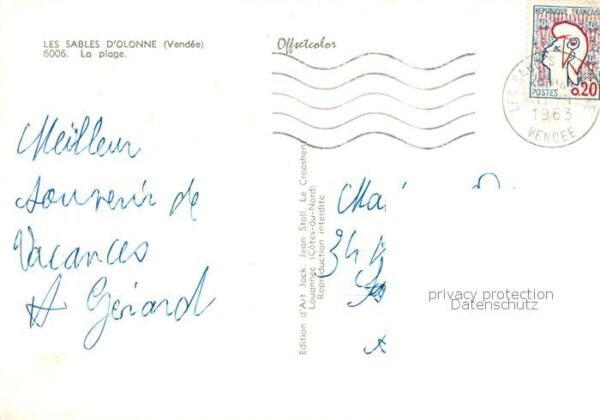 LES SABLES D'OLONNE (Vendée)
6006. La plage.
Offsetcolor
REPUBLIQUE FRANÇAISE
POSTES
0,20
LES SABLES
1963
VENDEE
Meilleur
souvenir de
Vacances
A Gérard
Edition d'Art Jack. Jean Stoll. Le Croashent
Louannec (Côtes-du-Nord)
Reproduction interdite
34
privacy protection
Datenschutz